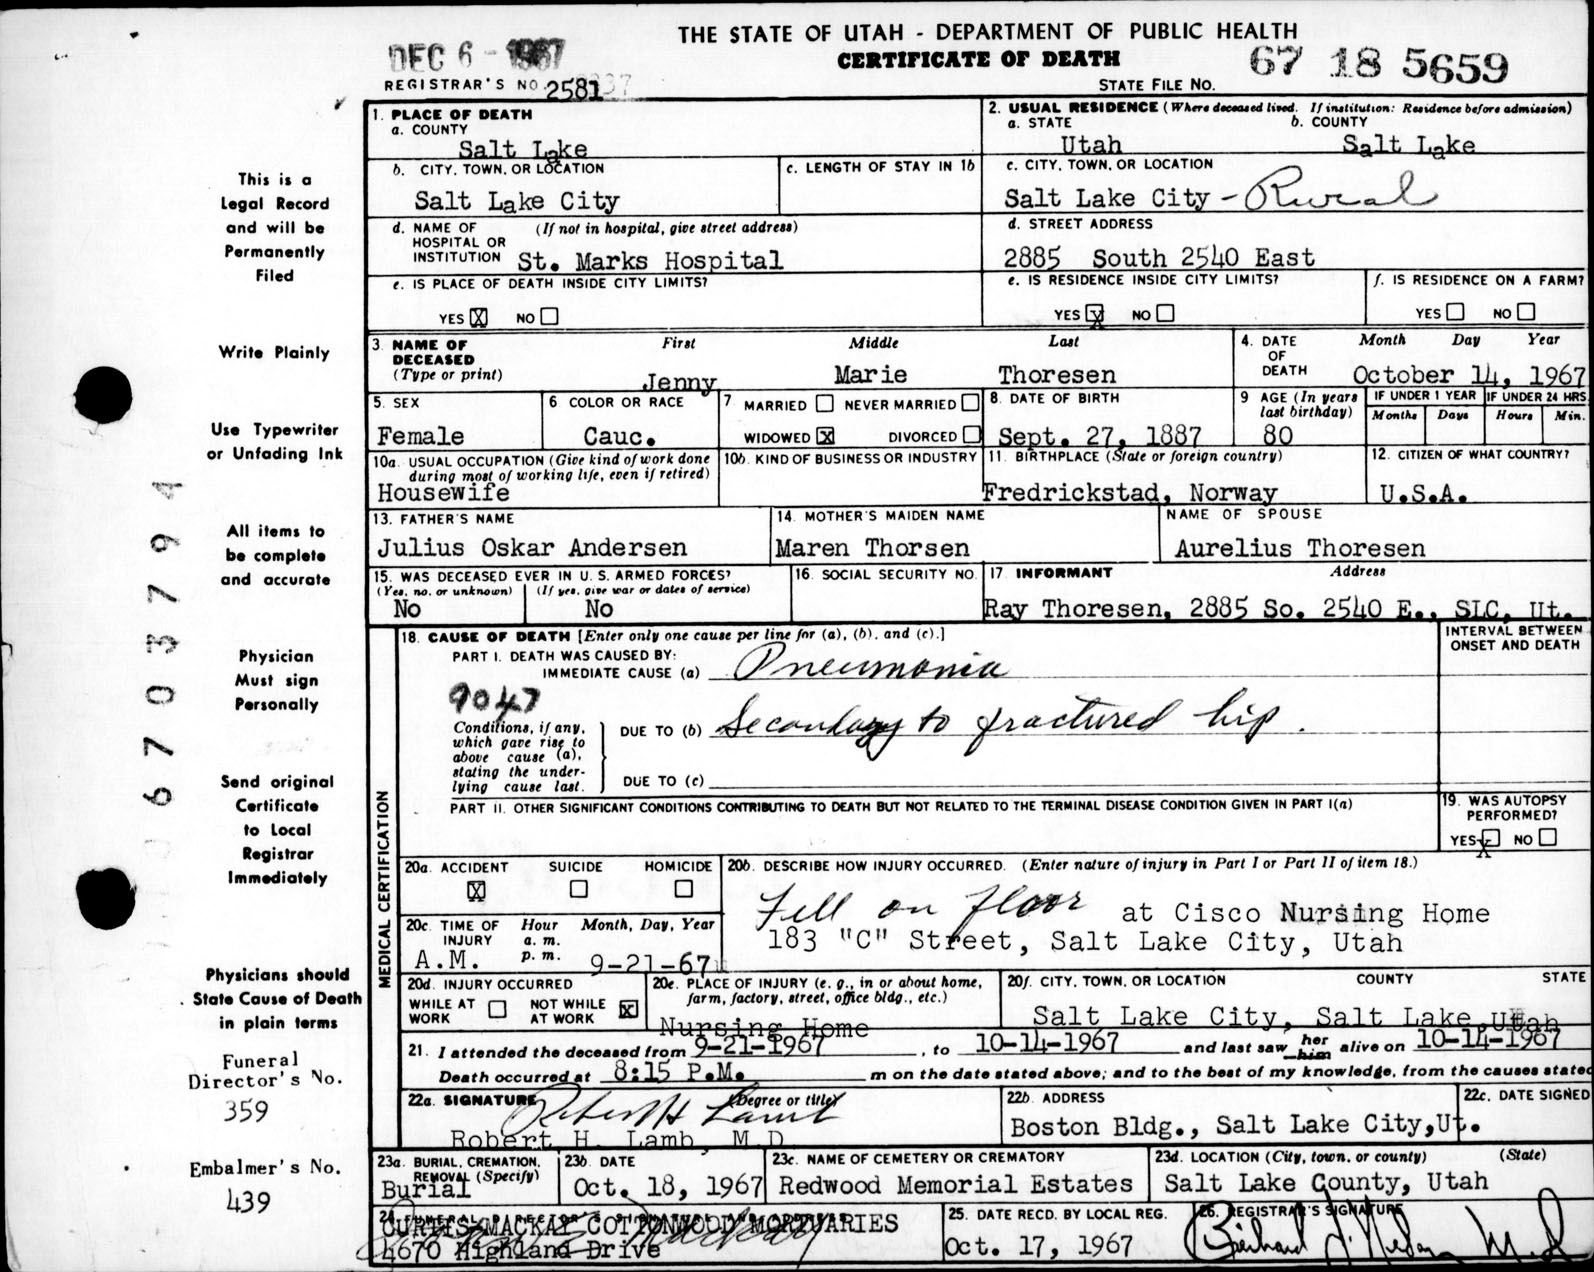 THE STATE OF UTAH - DEPARTMENT OF PUBLIC HEALTH
CERTIFICATE OF DEATH
DEC 6 - 1967
REGISTRAR'S NO. 2581
STATE FILE NO. 67 18 5659
This is a
Legal Record
and will be
Permanently
Filed
Write Plainly
Use Typewriter
or Unfading Ink
All items to
be complete
and accurate
Physician
Must sign
Personally
Send original
Certificate
to Local
Registrar
Immediately
Physicians should
State Cause of Death
in plain terms
Funeral
Director's No.
359
Embalmer's No.
439
06703794
1. PLACE OF DEATH
a. COUNTY
Salt Lake
2. USUAL RESIDENCE (Where deceased lived. If institution: Residence before admission)
a. STATE b. COUNTY
Utah Salt Lake
b. CITY, TOWN, OR LOCATION
Salt Lake City
c. LENGTH OF STAY IN 1b
c. CITY, TOWN, OR LOCATION
Salt Lake City - Rural
d. NAME OF (If not in hospital, give street address)
HOSPITAL OR
INSTITUTION St. Marks Hospital
d. STREET ADDRESS
2885 South 2540 East
e. IS PLACE OF DEATH INSIDE CITY LIMITS?
YES X NO
e. IS RESIDENCE INSIDE CITY LIMITS?
YES X NO
f. IS RESIDENCE ON A FARM?
YES NO
3. NAME OF First Middle Last
DECEASED
(Type or print) Jenny Marie Thoresen
4. DATE Month Day Year
OF
DEATH October 14, 1967
5. SEX
Female
6 COLOR OR RACE
Cauc.
7 MARRIED NEVER MARRIED
WIDOWED X DIVORCED
8. DATE OF BIRTH
Sept. 27, 1887
9 AGE (In years
last birthday)
80
IF UNDER 1 YEAR IF UNDER 24 HRS.
Months Days Hours Min.
10a. USUAL OCCUPATION (Give kind of work done
during most of working life, even if retired)
Housewife
10b. KIND OF BUSINESS OR INDUSTRY
11. BIRTHPLACE (State or foreign country)
Fredrickstad, Norway
12. CITIZEN OF WHAT COUNTRY?
U.S.A.
13. FATHER'S NAME
Julius Oskar Andersen
14. MOTHER'S MAIDEN NAME
Maren Thorsen
NAME OF SPOUSE
Aurelius Thoresen
15. WAS DECEASED EVER IN U. S. ARMED FORCES?
(Yes, no, or unknown) (If yes, give war or dates of service)
No No
16. SOCIAL SECURITY NO.
17 INFORMANT Address
Ray Thoresen, 2885 So. 2540 E., SLC, Ut.
MEDICAL CERTIFICATION
18. CAUSE OF DEATH [Enter only one cause per line for (a), (b), and (c).]
INTERVAL BETWEEN
ONSET AND DEATH
PART I. DEATH WAS CAUSED BY:
IMMEDIATE CAUSE (a) Pneumonia
9047
Conditions, if any,
which gave rise to
above cause (a),
stating the under-
lying cause last.
DUE TO (b) Secondary to fractured hip.
DUE TO (c)
PART II. OTHER SIGNIFICANT CONDITIONS CONTRIBUTING TO DEATH BUT NOT RELATED TO THE TERMINAL DISEASE CONDITION GIVEN IN PART I(a)
19. WAS AUTOPSY
PERFORMED?
YES X NO
20a. ACCIDENT SUICIDE HOMICIDE
X
20b. DESCRIBE HOW INJURY OCCURRED. (Enter nature of injury in Part I or Part II of item 18.)
Fell on floor at Cisco Nursing Home
183 "C" Street, Salt Lake City, Utah
20c. TIME OF Hour Month, Day, Year
INJURY a. m.
p. m.
A.M. 9-21-67
20d. INJURY OCCURRED
WHILE AT NOT WHILE
WORK AT WORK X
20e. PLACE OF INJURY (e. g., in or about home,
farm, factory, street, office bldg., etc.)
Nursing Home
20f. CITY, TOWN, OR LOCATION COUNTY STATE
Salt Lake City, Salt Lake, Utah
21. I attended the deceased from 9-21-1967, to 10-14-1967 and last saw her him alive on 10-14-1967
Death occurred at 8:15 P.M. m on the date stated above; and to the best of my knowledge, from the causes stated
22a. SIGNATURE (Degree or title)
Robert H Lamb
Robert H. Lamb, M.D.
22b. ADDRESS
Boston Bldg., Salt Lake City,Ut.
22c. DATE SIGNED
23a. BURIAL, CREMATION,
REMOVAL (Specify)
Burial
23b DATE
Oct. 18, 1967
23c. NAME OF CEMETERY OR CREMATORY
Redwood Memorial Estates
23d. LOCATION (City, town, or county) (State)
Salt Lake County, Utah
CURTIS MACKAY COTTONWOOD MORTUARIES
4670 Highland Drive
25. DATE RECD. BY LOCAL REG.
Oct. 17, 1967
26. REGISTRAR'S SIGNATURE